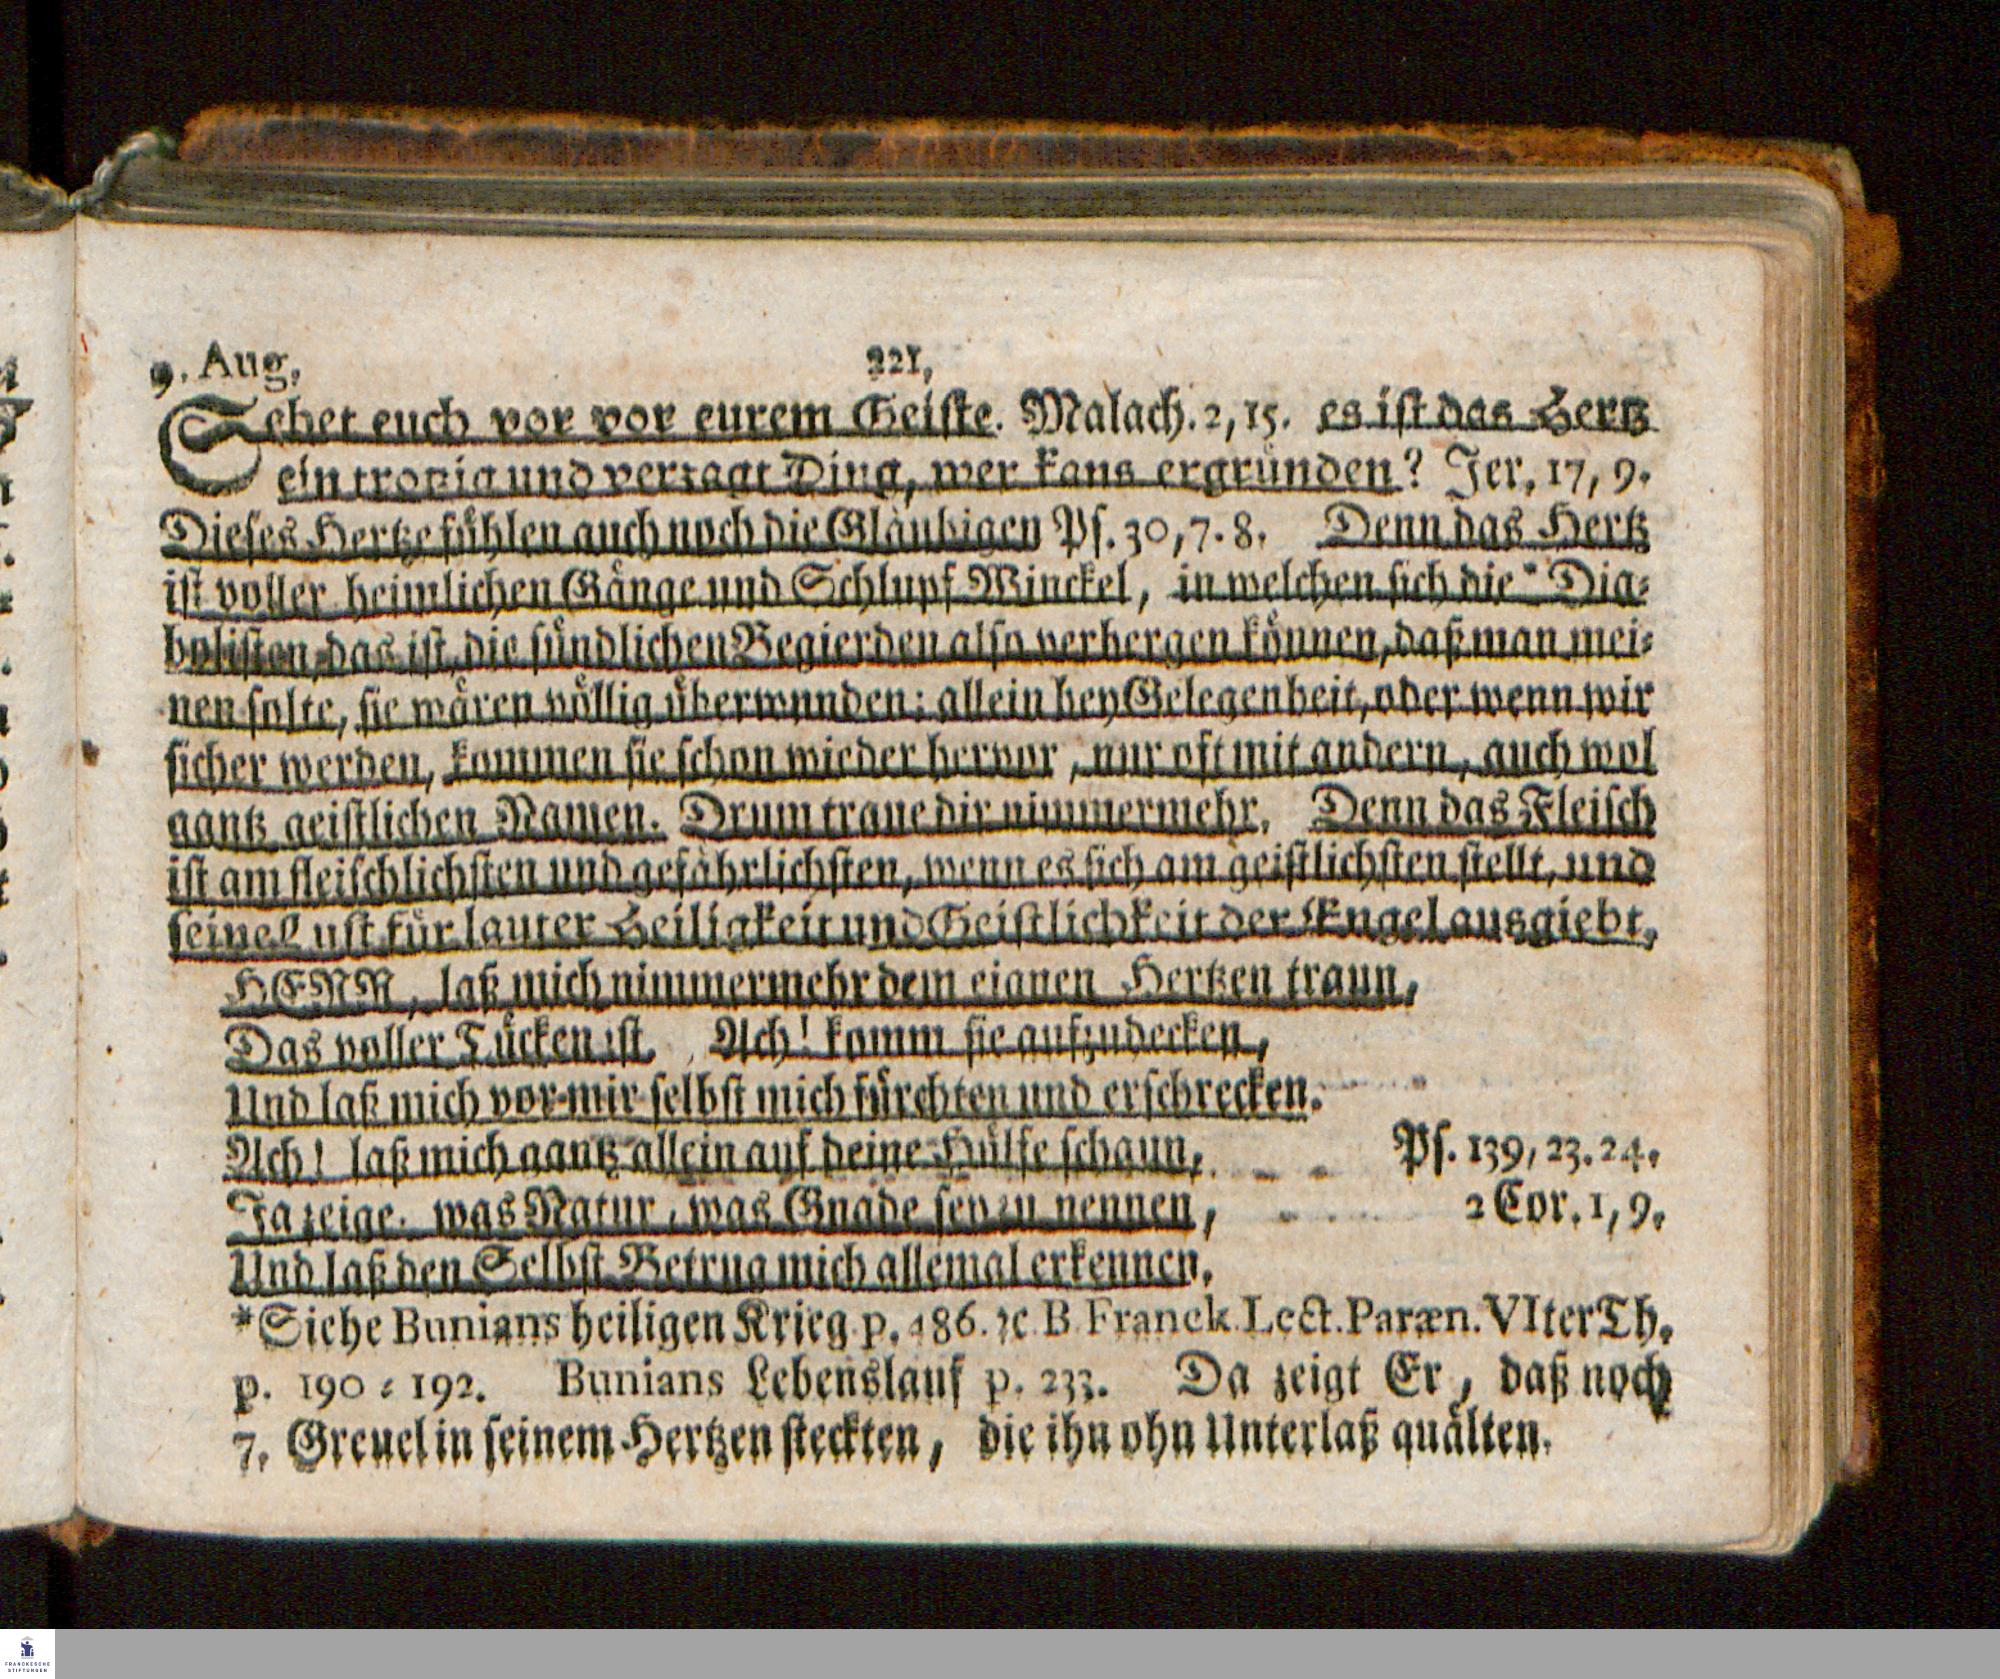 9. Aug. 221.
Sehet euch vor vor eurem Geiste. Malach. 2, 15. es ist das Hertz
ein trotzig und verzagt Ding, wer kans ergründen? Jer. 17, 9.
Dieses Hertze fühlen auch noch die Gläubigen Ps. 30, 7. 8. Denn das Hertz
ist voller heimlichen Gänge und Schlupf Winckel, in welchen sich die * Dia-
bolisten, das ist, die sündlichen Begierden also verbergen können, daß man mei-
nen solte, sie wären völlig überwunden: allein bey Gelegenheit, oder wenn wir
sicher werden, kommen sie schon wieder hervor, nur oft mit andern, auch wol
gantz geistlichen Namen. Drum traue dir nimmermehr. Denn das Fleisch
ist am fleischlichsten und gefährlichsten, wenn es sich am geistlichsten stellt, und
seine Lust für lauter Heiligkeit und Geistlichkeit der Engel ausgiebt.
HERR, laß mich nimmermehr dem eignen Hertzen traun,
Das voller Tücken ist. Ach! komm sie aufzudecken,
Und laß mich vor mir selbst mich fürchten und erschrecken.
Ach! laß mich gantz allein auf deine Hülfe schaun, Ps. 139, 23. 24.
Ja zeige, was Natur, was Gnade sey zu nennen, 2 Cor. 1, 9.
Und laß den Selbst Betrug mich allemal erkennen.
*Siehe Bunians heiligen Krieg p. 486. ꝛc. B. Franck. Lect. Paræn. VIter Th.
p. 190 = 192. Bunians Lebenslauf p. 233. Da zeigt Er, daß noch
7. Greuel in seinem Hertzen steckten, die ihn ohn Unterlaß quälten.
FRANCKESCHE
STIFTUNGEN